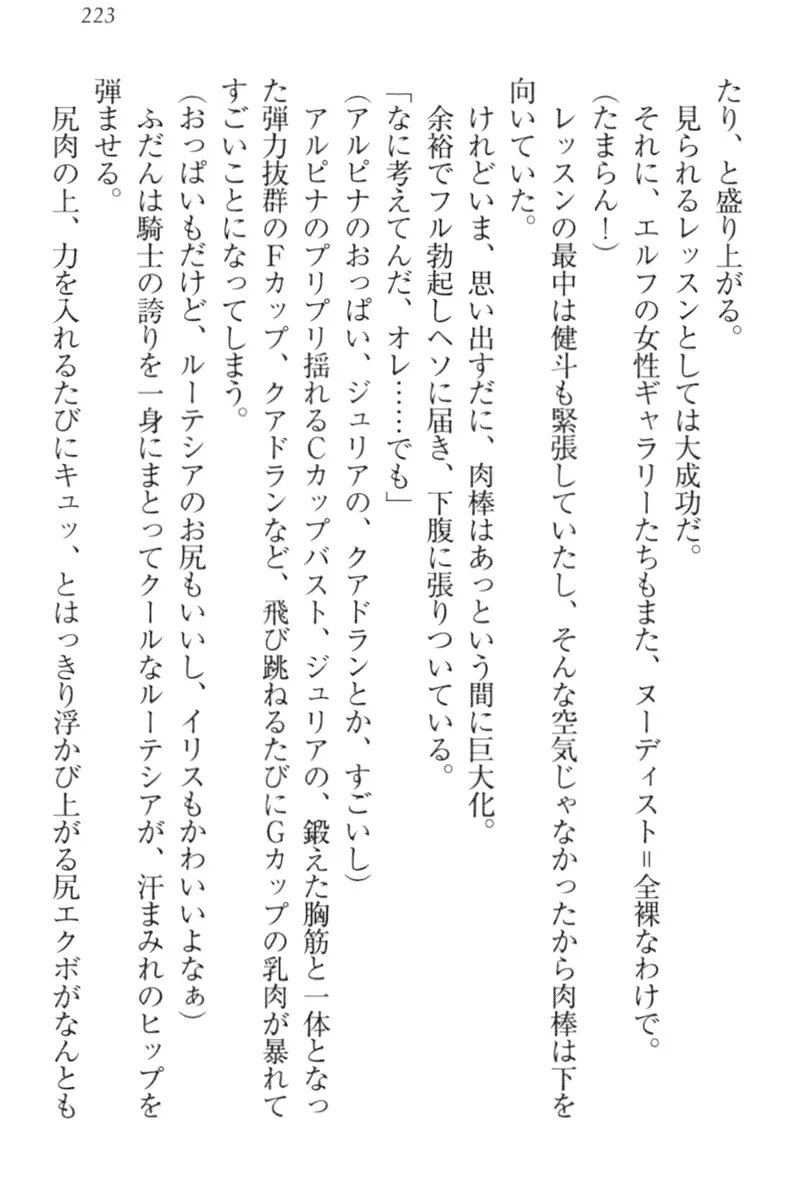 223
たり、と盛り上がる。
見られるレッスンとしては大成功だ。
それに、エルフの女性ギャラリーたちもまた、ヌーディスト＝全裸なわけで。
（たまらん！）
レッスンの最中は健斗も緊張していたし、そんな空気じゃなかったから肉棒は下を
向いていた。
けれどいま、思い出すだに、肉棒はあっという間に巨大化。
余裕でフル勃起しヘソに届き、下腹に張りついている。
「なに考えてんだ、オレ……でも」
（アルピナのおっぱい、ジュリアの、クアドランとか、すごいし）
アルピナのプリプリ揺れるＣカップバスト、ジュリアの、鍛えた胸筋と一体となっ
た弾力抜群のＦカップ、クアドランなど、飛び跳ねるたびにＧカップの乳肉が暴れて
すごいことになってしまう。
（おっぱいもだけど、ルーテシアのお尻もいいし、イリスもかわいいよなぁ）
ふだんは騎士の誇りを一身にまとってクールなルーテシアが、汗まみれのヒップを
弾ませる。
尻肉の上、力を入れるたびにキュッ、とはっきり浮かび上がる尻エクボがなんとも